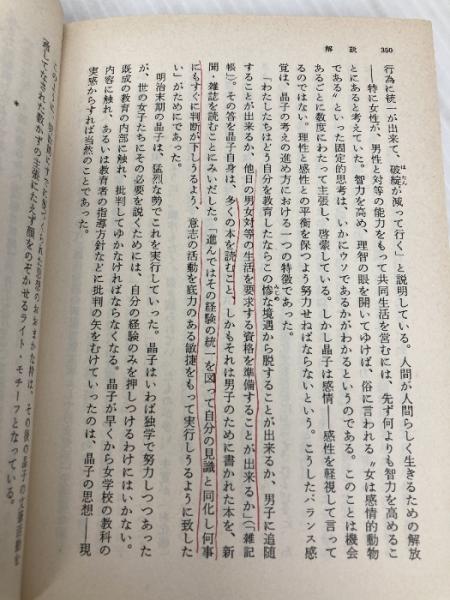 解説 350
行為に統一が出来て、破綻が減って行く」と説明している。人間が人間らしく生きるための解放
――特に女性が、男性と対等の能力をもって共同生活を営むには、先ず何よりも智力を高めるこ
とにあると考えていた。智力を高め、理智の眼を開いてゆけば、俗に言われる〝女は感情的動物
である〟といった固定的思考は、いかにウソであるかがわかるというのである。このことは機会
あるごとに数度にわたって主張し、啓蒙している。しかし晶子は感情――感性を軽視して言って
るのではない。理性と感性との平衡を保つよう努力せねばならないという。こうしたバランス感
覚は、晶子の考えの進め方における一つの特徴であった。
「わたしたちはどう自分を教育したならこの惨な境遇から脱することが出来るか、男子に追随
することが出来るか、他日の男女対等の生活を要求する資格を準備することが出来るか」（「雑記
帳」）。その答を晶子自身は、多くの本を読むこと、しかもそれは男子のために書かれた本を、新
聞・雑誌を読むことにみいだした。「進んではその経験の統一を図って自分の見識と同化し何事
にもすぐに判断が下しうるよう、意志の活動を底力のある敏捷をもって実行しうるように致した
い」がためにであった。
明治末期の晶子は、猛烈な勢でこれを実行していった。晶子はいわば独学で努力しつつあった
が、世の女子たちにその必要を説くためには、自分の経験のみを押しつけるわけにはいかない。
既成の教育の内部に触れ、批判してゆかなければならなくなる。晶子が早くから女学校の教科の
内容に触れ、あるいは教育者の指導方針などに批判の矢をむけていったのは、晶子の思想――現
実感からすれば当然のことであった。